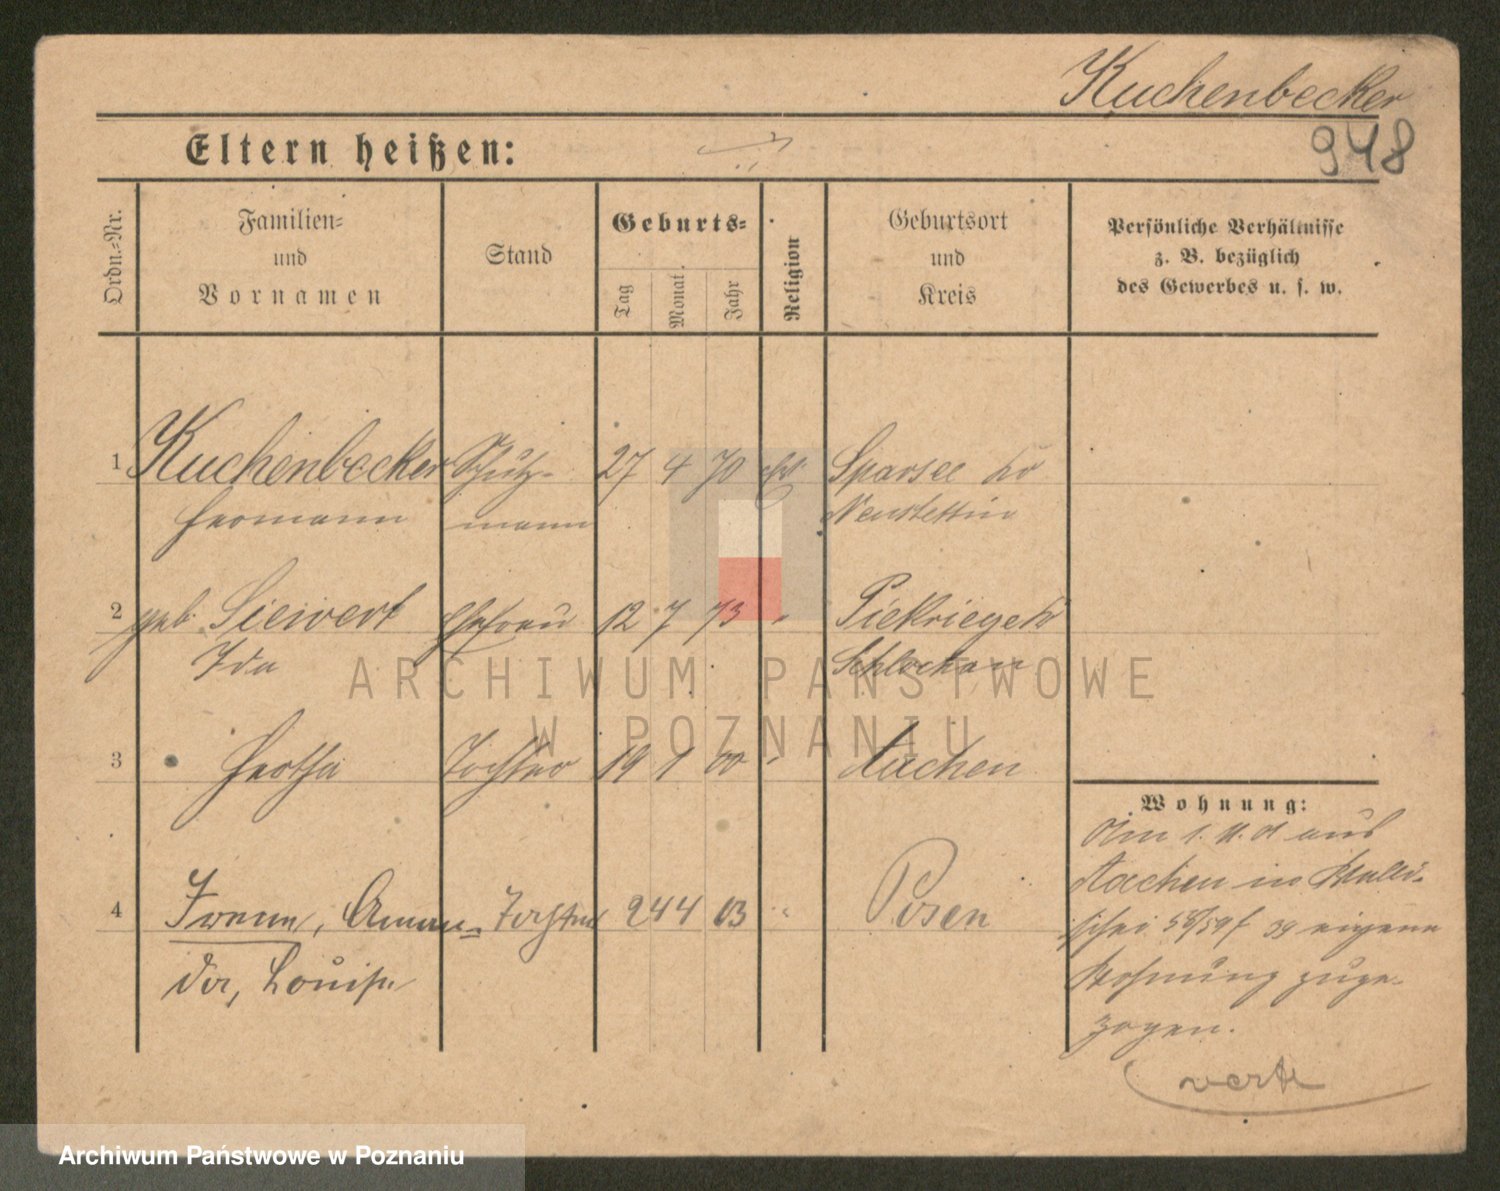 Kuchenbecker
948
Eltern heißen:
Ordn.-Nr.
Familien-
und
Vornamen
Stand
Geburts-
Tag
Monat
Jahr
Religion
Geburtsort
und
Kreis
Persönliche Verhältnisse
z. B. bezüglich
des Gewerbes u. s. w.
1 Kuchenbecker Schutz- 27 4 70 Sparsee
Hermann mann Neustettin
2 geb. Sieivert Ehefrau 12 7 73 "
Ida Schlochau
3 Hertha Tochter 19 1 00 " Aachen
4 Irene, Aman- Tochter 24 4 03 " Posen
da, Louise
Wohnung:
Am 1. 11. 01 aus
Aachen in Walli-
schei 58/59 f 39 eigene
Wohnung zuge-
zogen.
verte
ARCHIWUM PAŃSTWOWE
W POZNANIU
Archiwum Państwowe w Poznaniu